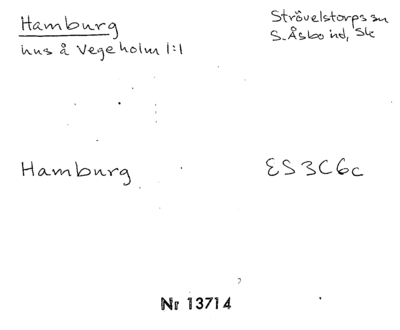 Hamburg
hus å Vegeholm 1:1
Strövelstorps sn
S. Åsbo hd, Sk
Hamburg
ES3C6c
Nr 13714